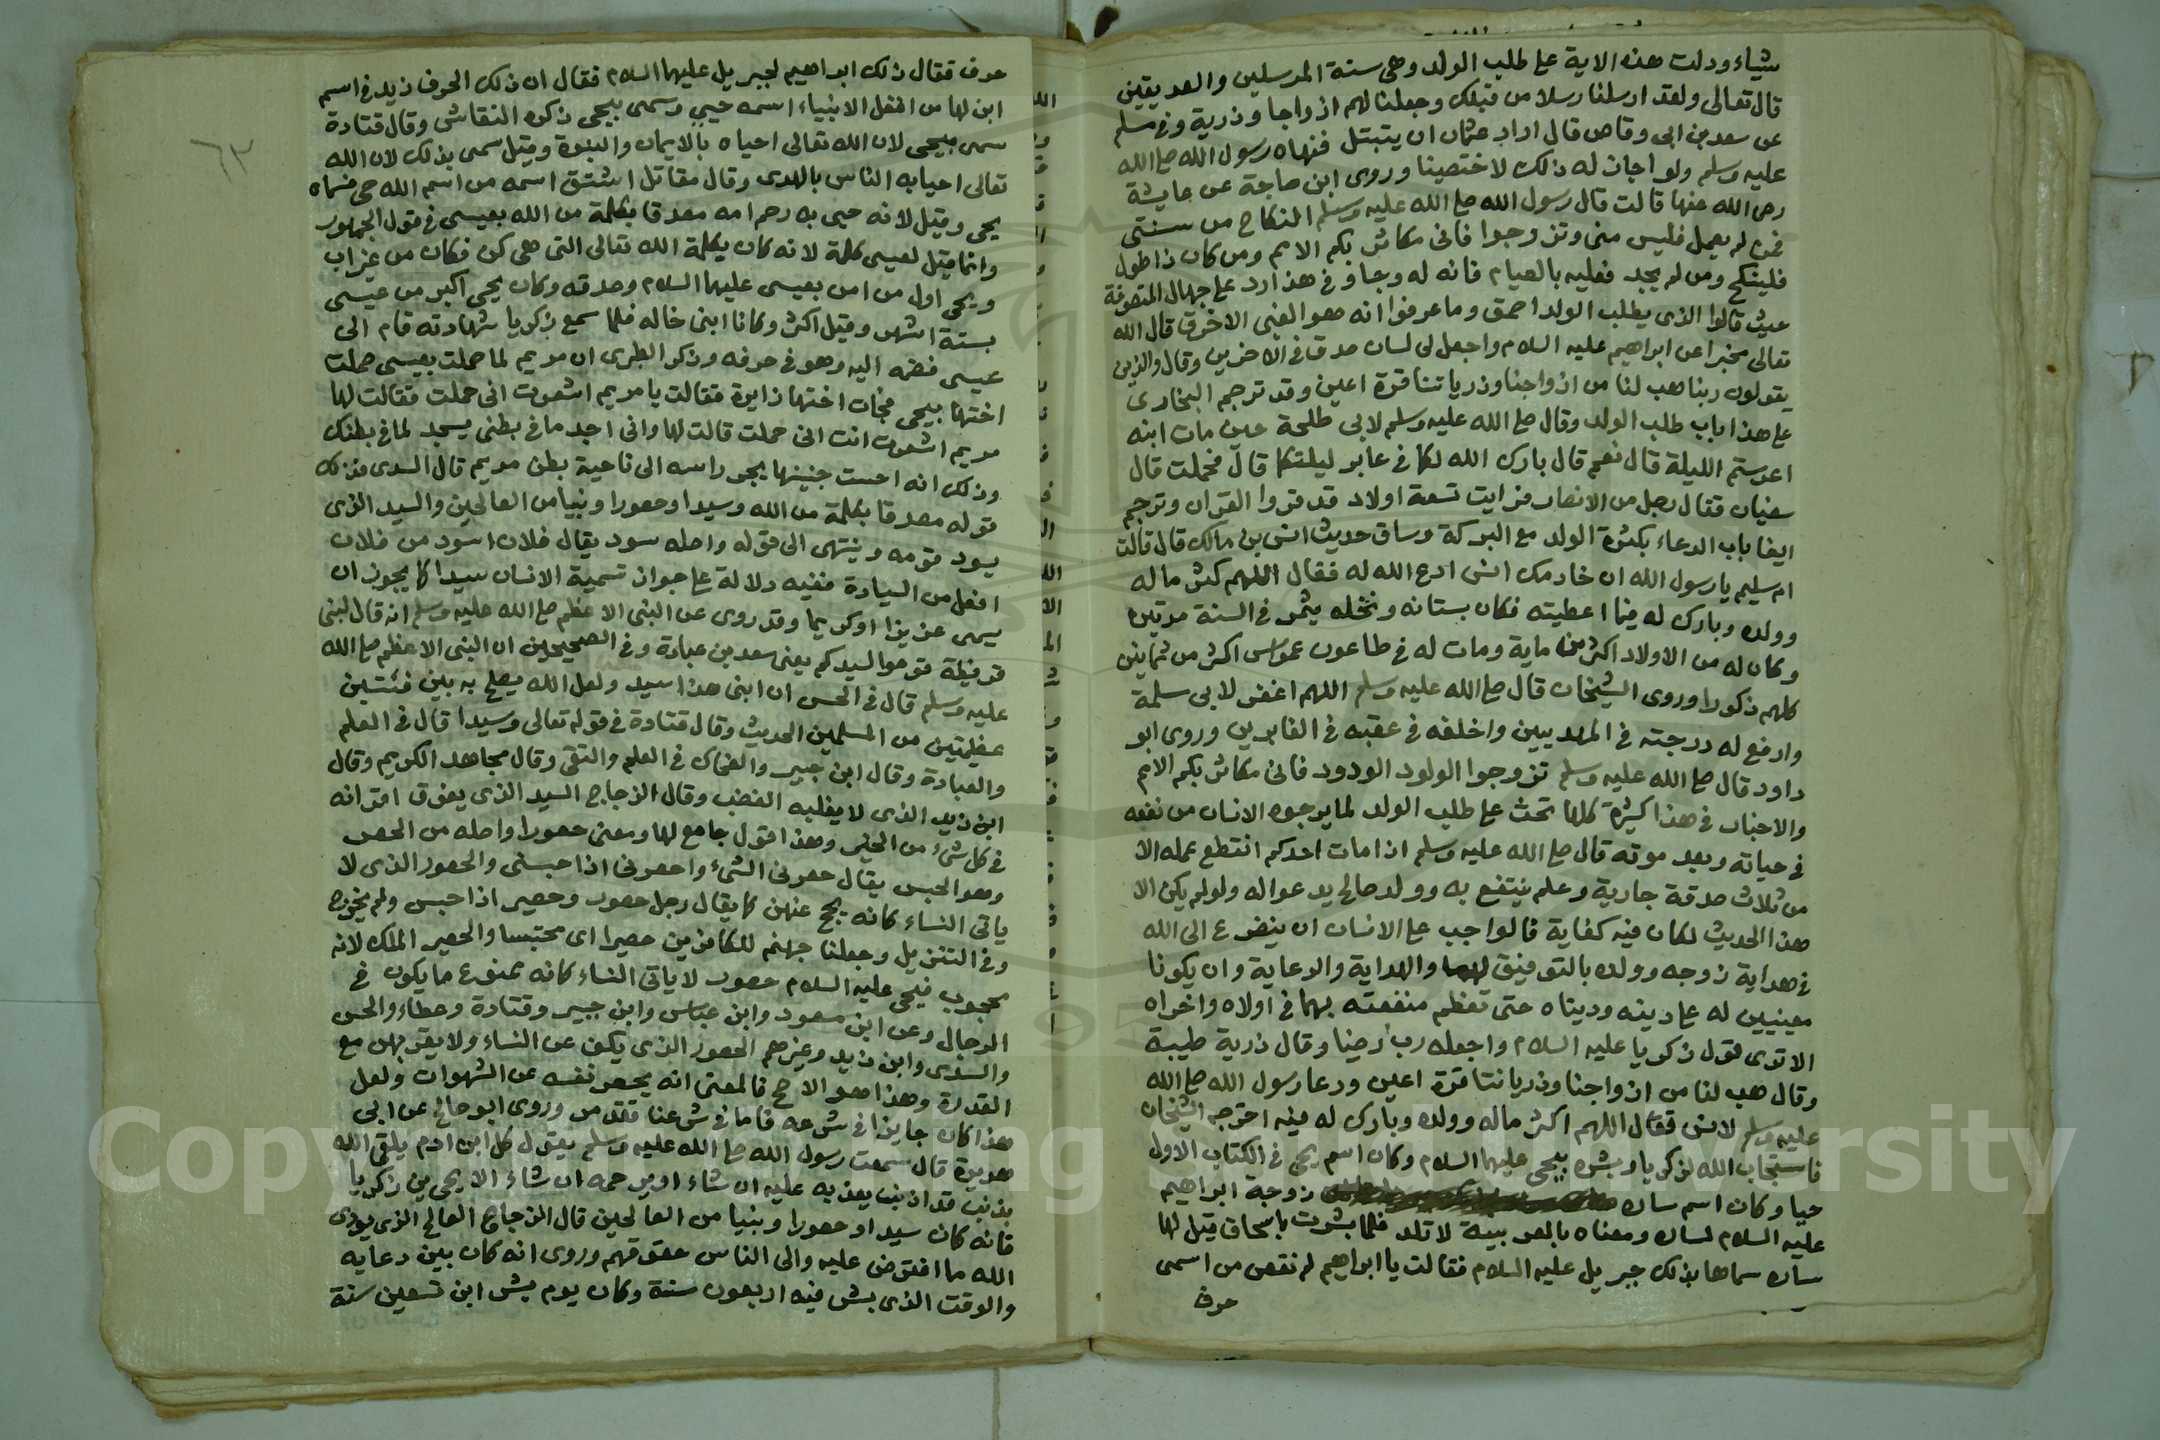 شياء ودلت هذه الاية على طلب الولد وهى سنة المرسلين والصديقين
قال تعالى ولقد ارسلنا رسلا من قبلك وجعلنا لهم ازواجا وذرية وفي مسلم
عن سعد بن ابى وقاص قال اراد عثمان ان يتبتل فنهاه رسول الله صلى الله
عليه وسلم ولو اجاز له ذلك لاختصينا وروى ابن ماجة عن عايشة
رضى الله عنها قالت قال رسول الله صلى الله عليه وسلم النكاح من سنتى
فمن لم يعمل فليس منى وتزوجوا فانى مكاثر بكم الامم ومن كان ذا طول
فلينكح ومن لم يجد فعليه بالصيام فانه له وجاء وفي هذا رد على جهال المتصوفة
حيث قالوا الذى يطلب الولد احمق وما عرفوا انه هو الغبى الاخرق قال الله
تعالى مخبرا عن ابراهيم عليه السلام واجعل لى لسان صدق في الاخرين وقال والذين
يقولون ربنا هب لنا من ازواجنا وذرياتنا قرة اعين وقد ترجم البخارى
على هذا باب طلب الولد وقال صلى الله عليه وسلم لابى طلحة حين مات ابنه
اعرستم الليلة قال نعم قال بارك الله لكما في غابر ليلتكما قال فحملت قال
سفيان فقال رجل من الانصار فرايت تسعة اولاد قد قروا القران وترجم
ايضا باب الدعاء بكثرة الولد مع البركة وساق حديث انس بن مالك قال قالت
ام سليم يا رسول الله ان خادمك انس ادع الله له فقال اللهم كثر ماله
وولده وبارك له فيما اعطيته فكان بستانه ونخله يثمر في السنة مرتين
وكان له من الاولاد اكثر من ماية ومات له في طاعون عمواس اكثر من ثمانين
كلهم ذكورا وروى الشيخان قال صلى الله عليه وسلم اللهم اغفر لابى سلمة
وارفع له درجته في المهديين واخلفه في عقبه في الغابرين وروى ابو
داود قال صلى الله عليه وسلم تزوجوا الولود الودود فانى مكاثر بكم الامم
والاخبار في هذا كثيرة كلها تحث على طلب الولد لما يرجوه الانسان من نفعه
في حياته وبعد موته قال صلى الله عليه وسلم اذا مات احدكم انقطع عمله الا
من ثلاث صدقة جارية وعلم ينتفع به وولد صالح يدعوا له ولو لم يكن الا
هذا الحديث لكان فيه كفاية فالواجب على الانسان ان يتضرع الى الله
في هداية زوجه وولده بالتوفيق لهما والهداية والرعاية وان يكونا
معينين له على دينه ودنياه حتى تعظم منفعته بهما في اولاه واخراه
الا ترى قول زكريا عليه السلام واجعله رب رضيا وقال ذرية طيبة
وقال هب لنا من ازواجنا وذرياتنا قرة اعين ودعا رسول الله صلى الله
عليه وسلم لانس فقال اللهم اكثر ماله وولده وبارك له فيه اخرجه الشيخان
فاستجاب الله لزكريا وبشره بيحيى عليهما السلام وكان اسم يحيى في الكتاب الاول
حيا وكان اسم ساره زوجة ابراهيم
عليه السلام لساره ومعناه بالعربية لا تلد فلما بشرت باسحاق قيل لها
ساره سماها بذلك جبريل عليه السلام فقالت يا ابراهيم لم نقص من اسمى
حرف
٦٣
حرف فقال ذلك ابراهيم لجبريل عليهما السلام فقال ان ذلك الحرف زيد في اسم
ابن لها من افضل الانبياء اسمه حيى وسمى بيحيى ذكره النقاش وقال قتادة
سمى بيحيى لان الله تعالى احياه بالايمان والنبوة وقيل سمى بذلك لان الله
تعالى احيا به الناس بالهدى وقال مقاتل اشتق اسمه من اسم الله حى فسماه
يحيى وقيل لانه حيى به رحم امه مصدقا بكلمة من الله بعيسى في قول الجمهور
وانما قيل لعيسى كلمة لانه كان بكلمة الله تعالى التى هى كن فكان من غير اب
ويحيى اول من امن بعيسى عليهما السلام وصدقه وكان يحيى اكبر من عيسى
بستة اشهر وقيل اكثر وكانا ابنى خاله فلما سمع زكريا شهادته قام الى
عيسى فضمه اليه وهو في خرقه وذكر الطبرى ان مريم لما حملت بعيسى حملت
اختها بيحيى فجات اختها زايرة فقالت يا مريم اشعرت انى حملت فقالت لها
مريم اشعرت انت انى حملت قالت لها وانى اجد ما في بطنى يسجد لما في بطنك
وذلك انه احست جنينها يخر براسه الى ناحية بطن مريم قال السدى فذلك
قوله مصدقا بكلمة من الله وسيدا وحصورا ونبيا من الصالحين والسيد الذى
يسود قومه وينتهى الى قوله واصله سود يقال فلان اسود من فلان
افعل من السيادة ففيه دلالة على جواز تسمية الانسان سيدا كما يجوز ان
يسمى عزيزا او كريما وقد روى عن النبى الاعظم صلى الله عليه وسلم انه قال لبنى
قريظة قوموا لسيدكم يعنى سعد بن عبادة وفي الصحيحين ان النبى الاعظم صلى الله
عليه وسلم قال في الحسن ان ابنى هذا سيد ولعل الله يصلح به بين فئتين
عظيمتين من المسلمين الحديث وقال قتادة في قوله تعالى وسيدا قال في العلم
والعبادة وقال ابن جبير والضحاك في العلم والتقى وقال مجاهد الكريم وقال
ابن زيد الذى لا يغلبه الغضب وقال الزجاج السيد الذى يفوق اقرانه
في كل شئ من الخير وهذا قول جامع لها ومعنى حصورا واصله من الحصر
وهو الحبس يقال حصرنى الشئ واحصرنى اذا حبسنى والحصور الذى لا
ياتى النساء كانه يحج عنهن كما يقال رجل حصور وحصير اذا حبس ولم يخرج
وفي التنزيل وجعلنا جهنم للكافرين حصيرا اى محتبسا والحصير الملك لانه
محجوب فيحيى عليه السلام حصور لا ياتى النساء كانه ممنوع ما يكون في
الرجال وعن ابن مسعود وابن عباس وابن جبير وقتادة وعطاء والحسن
والسدى وابن زيد وغيرهم الحصور الذى يكف عن النساء ولا يقربهن مع
القدرة وهذا هو الاصح فالمعنى انه يحصر نفسه عن الشهوات ولعل
هذا كان جايزا في شرعه فاما في شرعنا فقد مر وروى ابو صالح عن ابى
هريرة قال سمعت رسول الله صلى الله عليه وسلم يقول كل ابن ادم يلقى الله
بذنب قد اذنب يعذبه عليه ان شاء او يرحمه ان شاء الا يحيى بن زكريا
فانه كان سيدا وحصورا ونبيا من الصالحين قال الزجاج الصالح الذى يؤدى
الله ما افترض عليه والى الناس حقوقهم وروى انه كان بين دعايه
والوقت الذى بشر فيه اربعون سنة وكان يوم بشر ابن تسعين سنة